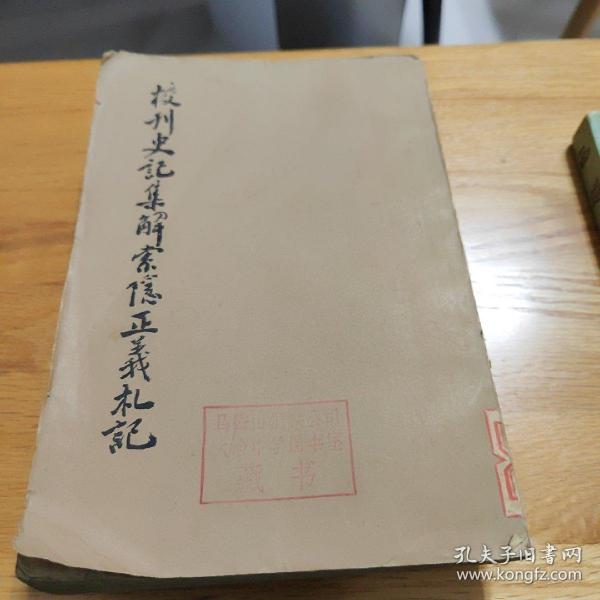 校刊史記集解索隱正義札記
藏书
孔夫子旧书网
www.kongfz.com